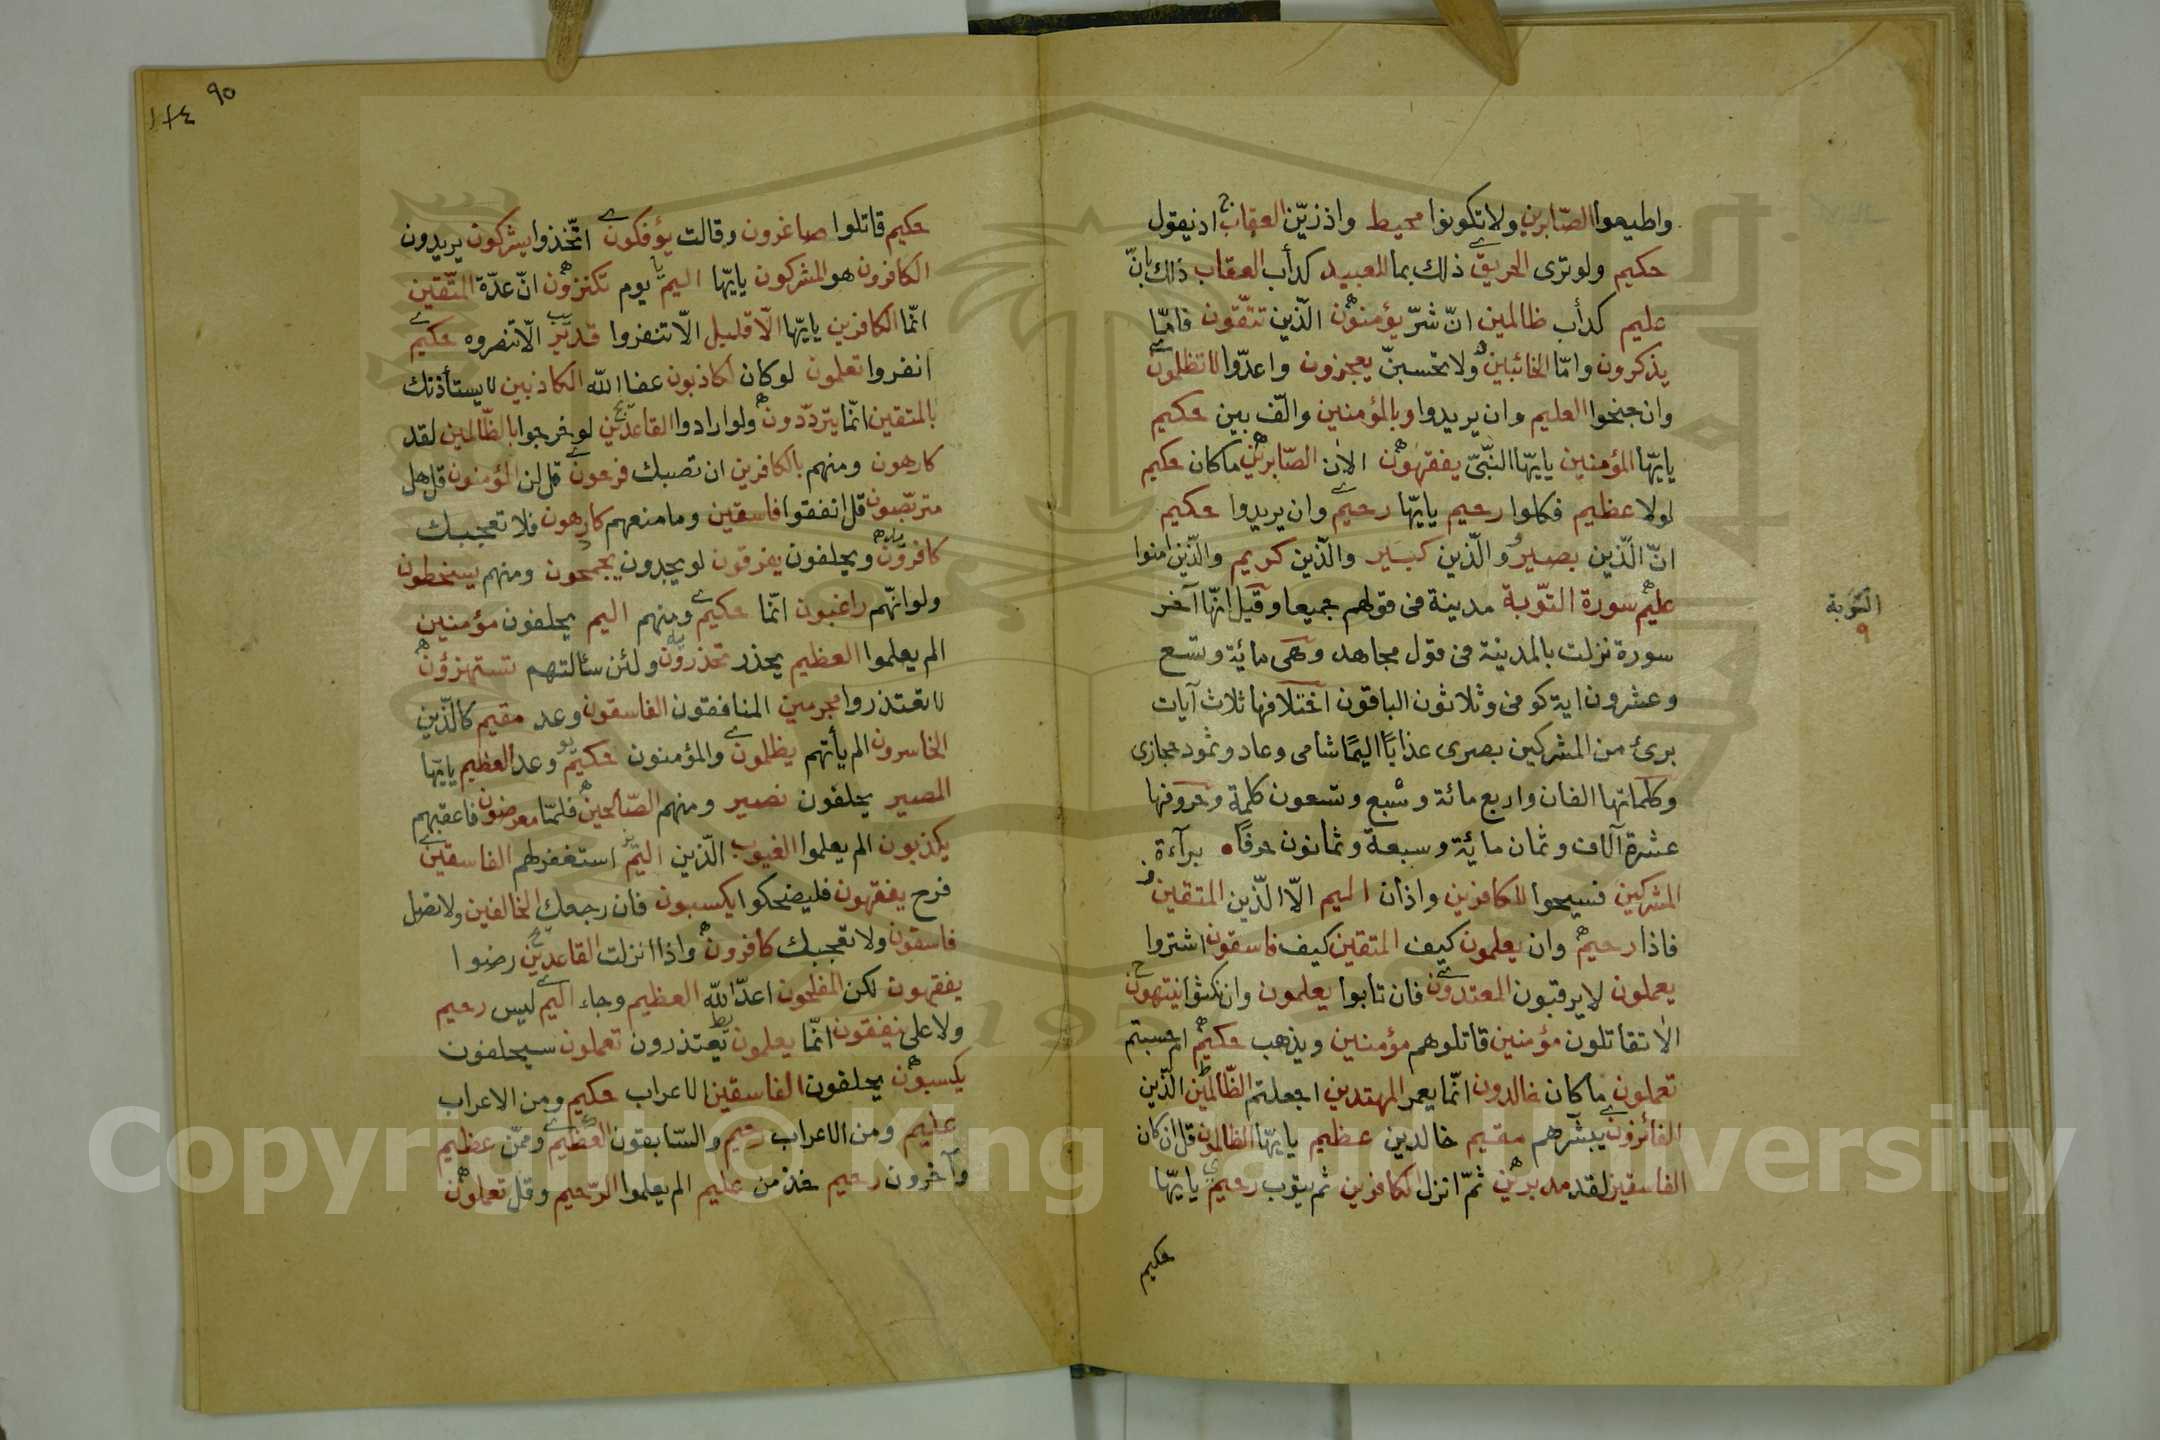 واطيعوا الصّابرين ولا تكونوا محيط واذ زيّن العقاب اذ يقول
حكيم ولو ترى الحريق ذلك بما للعبيد كدأب العقاب ذلك بانّ
عليم كدأب ظالمين انّ شرّ يؤمنون الّذين تتّقون فامّا
يذكرون وامّا الخائنين ولا تحسبنّ يعجزون واعدّوا لا تظلمون
وان جنحوا العليم وان يريدوا وبالمؤمنين والّف بين حكيم
يايّها المؤمنين يايّها النّبيّ يفقهون الان الصّابرين ما كان حكيم
لولا عظيم فكلوا رحيم يايّها رحيم وان يريدوا حكيم
انّ الّذين بصير والّذين كبير والّذين كريم والّذين امنوا
عليم سورة التّوبة مدينة فى قولهم جميعا وقيل انّها آخر
سورة نزلت بالمدينة فى قول مجاهد وهى مائة وتسع
وعشرون اية كوفى وثلاثون الباقون اختلافها ثلاث آيات
برئ من المشركين بصرى عذابًا اليمًا شامى وعاد وثمود حجازى
وكلماتها الفان واربع مائة وسبع وتسعون كلمة وحروفها
عشرة آلاف وثمان مائة وسبعة وثمانون حرفًا براءة
المشركين فسيحوا الكافرين واذان اليم الّا الّذين المتقين
فاذا رحيم وان يعلمون كيف المتقين كيف فاسقون اشتروا
يعملون لا يرقبون المعتدون فان تابوا يعلمون وان نكثوا ينتهون
الا تقاتلون مؤمنين قاتلوهم مؤمنين ويذهب حكيم ام حسبتم
تعملون ما كان خالدون انّما يعمر المهتدين اجعلتم الظّالمين الّذين
الفائزون يبشّرهم مقيم خالدين عظيم يايّها الظالمون قل ان كان
الفاسقين لقد مدبرين ثمّ انزل الكافرين ثم يتوب رحيم يايّها
حكيم
التّوبة
٩
٩٥
حكيم قاتلوا صاغرون وقالت يؤفكون اتّخذوا يشركون يريدون
الكافرون هو المشركون يايّها اليم يوم تكنزون انّ عدّة المتّقين
انّما الكافرين يايّها الّا قليل الّا تنفروا قدير الّا تنصروه حكيم
انفروا تعلمون لو كان لكاذبون عفا اللّه الكاذبين لا يستأذنك
بالمتقين انّما يتردّدون ولو ارادوا القاعدين لو خرجوا بالظّالمين لقد
كارهون ومنهم بالكافرين ان تصبك فرحون قل لن المؤمنون قل هل
متربّصون قل انفقوا فاسقين وما منعهم كارهون فلا تعجبك
كافرون ويحلفون يفرقون لو يجدون يجمحون ومنهم يسخطون
ولو انّهم راغبون انّما حكيم ومنهم اليم يحلفون مؤمنين
الم يعلموا العظيم يحذر تحذرون ولئن سئالتهم تستهزؤن
لا تعتذروا مجرمين المنافقون الفاسقون وعد مقيم كالّذين
الخاسرون الم يأتهم يظلمون والمؤمنون حكيم وعد العظيم يايّها
المصير يحلفون نصير ومنهم الصّالحين فلمّا معرضون فاعقبهم
يكذبون الم يعلموا الغيوب الّذين اليم استغفر لهم الفاسقين
فرح يفقهون فليضحكوا يكسبون فان رجعك الخالفين ولا تصل
فاسقون ولا تعجبك كافرون واذا انزلت القاعدين رضوا
يفقهون لكن المفلحون اعدّ اللّه العظيم وجاء اليم ليس رحيم
ولا على ينفقون انّما يعلمون يعتذرون تعملون سيحلفون
يكسبون يحلفون الفاسقين الاعراب حكيم ومن الاعراب
عليم ومن الاعراب رحيم والسّابقون العظيم وممّن عظيم
وآخرون رحيم خذ من عليم الم يعلموا الرّحيم وقل تعملون
Copyright © King Saud University